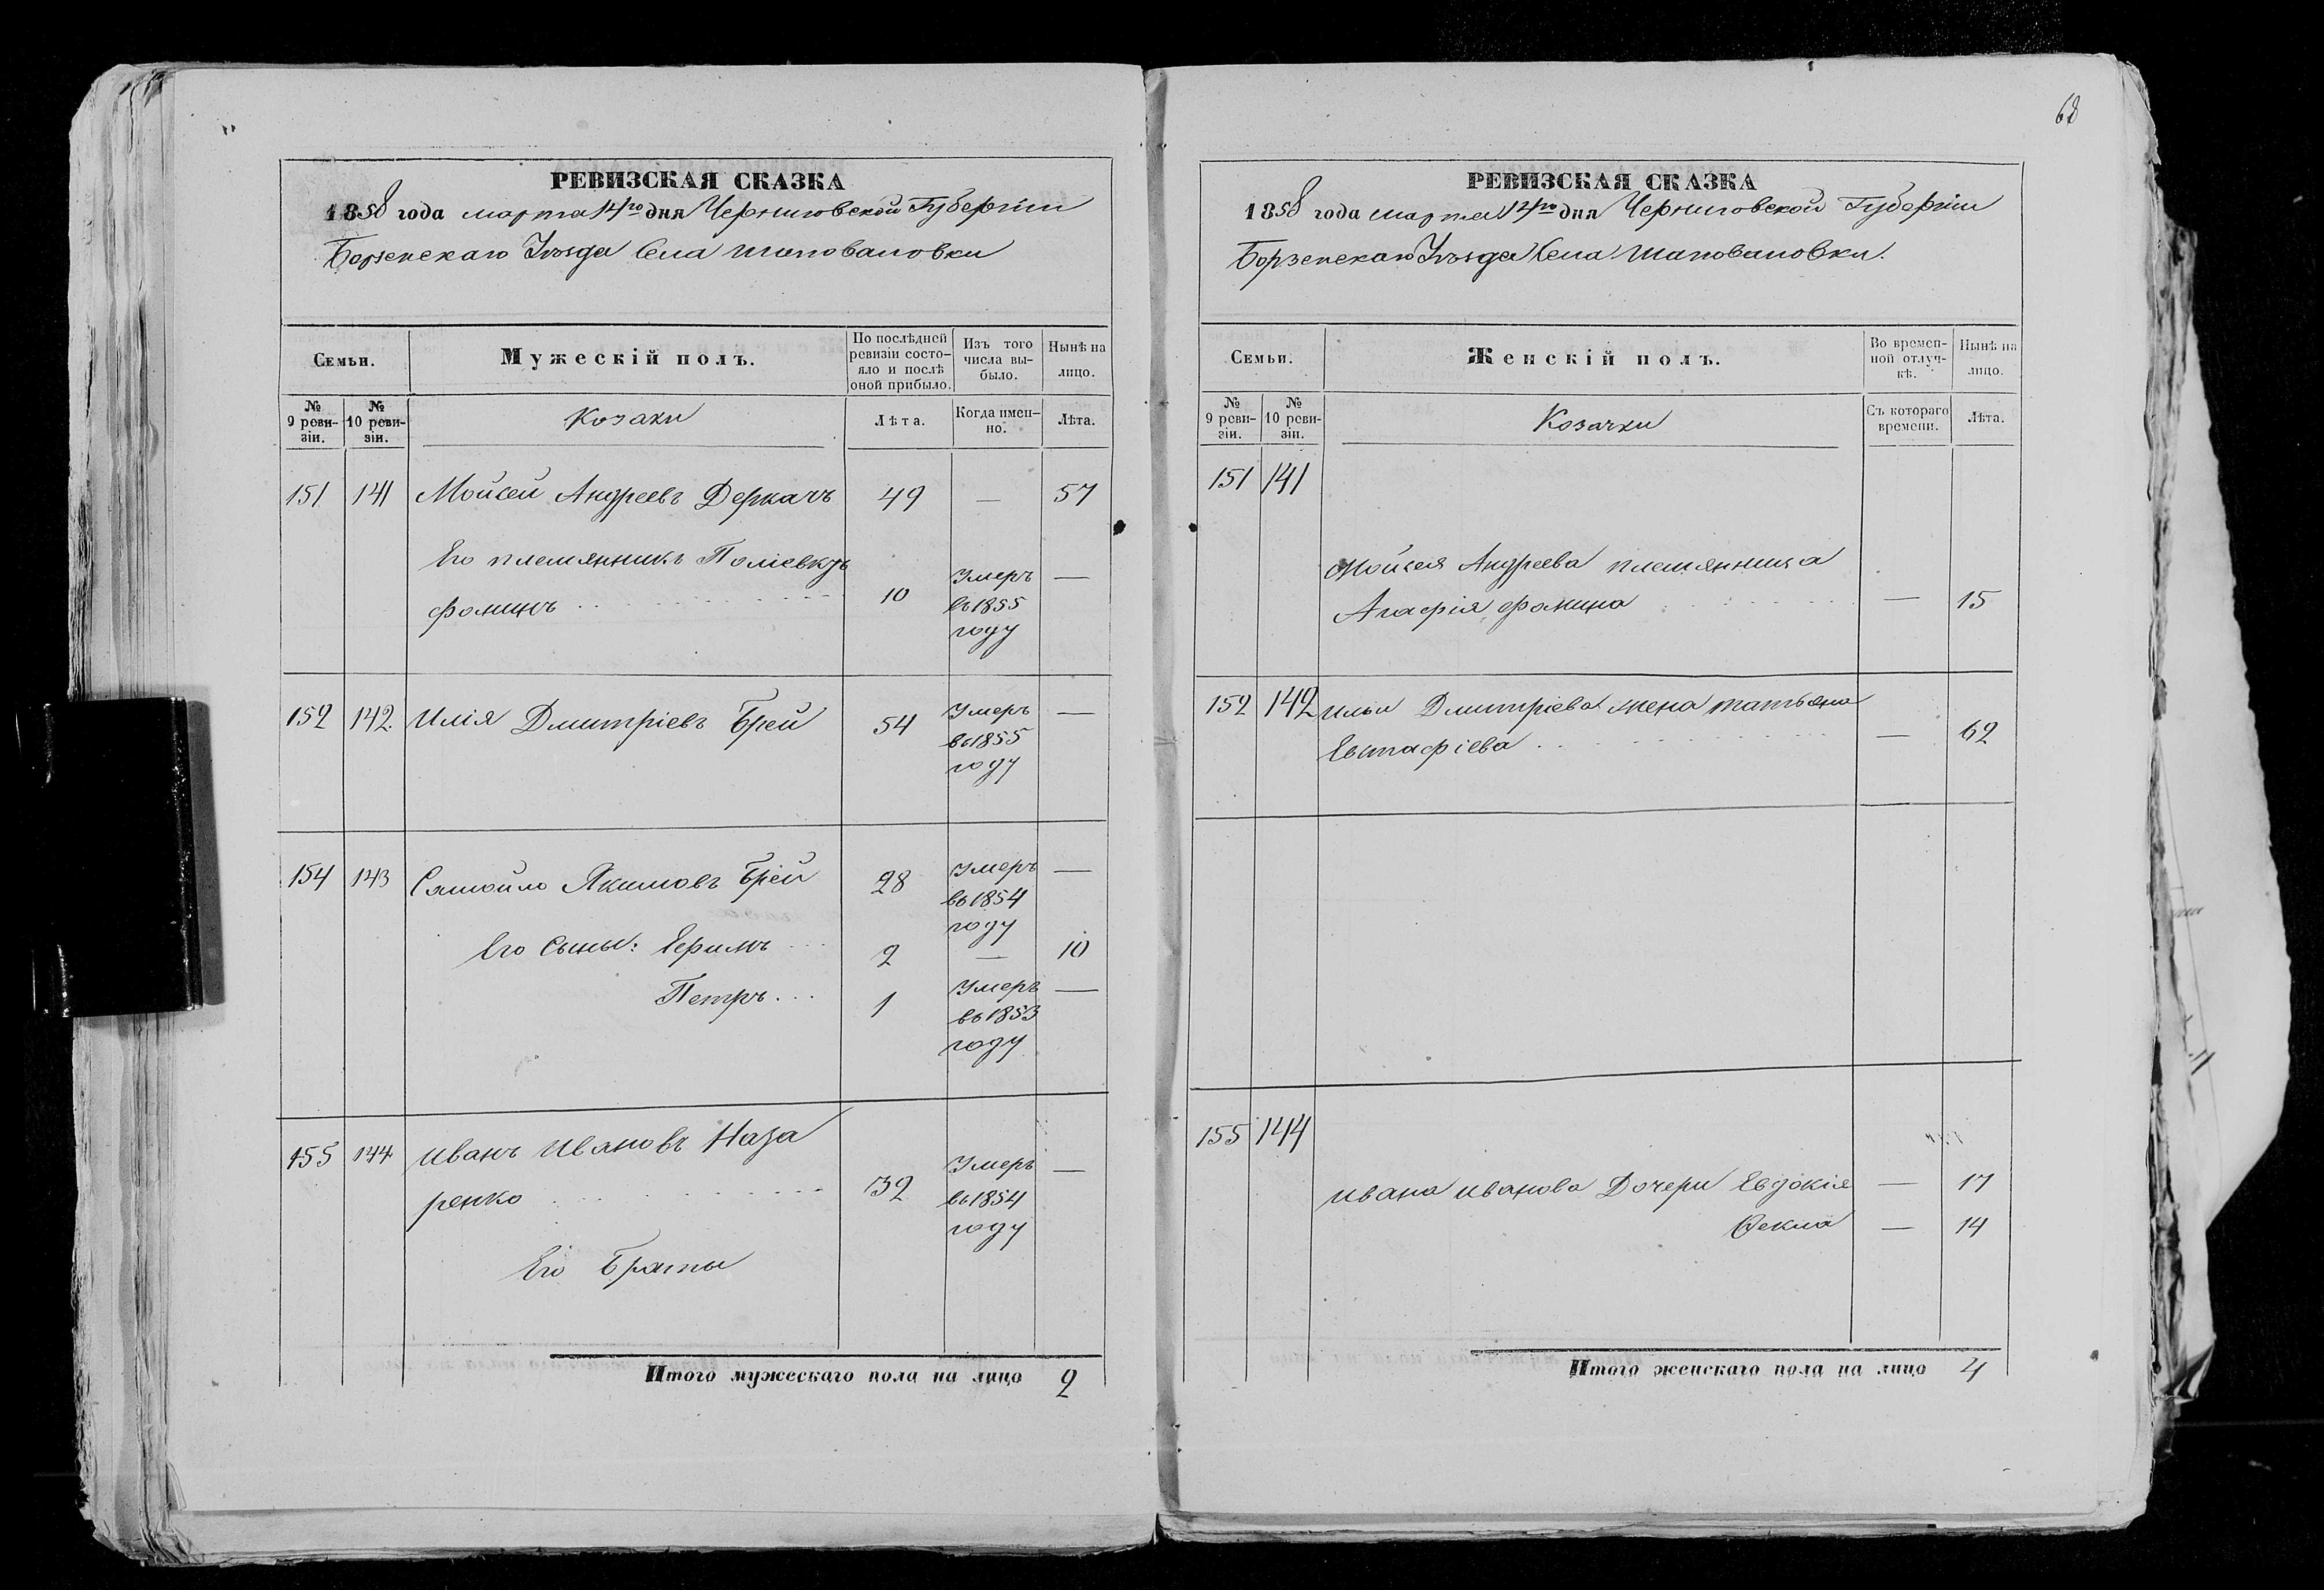 68
РЕВИЗСКАЯ СКАЗКА
1858 года марта 14го дня Черниговской Губерніи
Борзенскаго Уѣзда Села Шаповаловки
Семьи.
Мужескій полъ.
По послѣдней ревизіи состояло и послѣ оной прибыло.
Изъ того числа выбыло.
Нынѣ на лицо.
№ 9 ревизіи.
№ 10 ревизіи.
Козаки
Лѣта.
Когда именно.
Лѣта.
151 141 Мойсей Андреевъ Деркачъ 49 — 57
Его племянникъ Поліевктъ
Фоминъ 10 Умеръ въ 1855 году —
152 142 Илія Дмитріевъ Брей 54 Умеръ въ 1855 году —
154 143 Самойло Якимовъ Брей 28 Умеръ въ 1854 году —
Его Сыны: Ефимъ 2 — 10
Петръ 1 Умеръ въ 1853 году —
155 144 Иванъ Ивановъ Наза
ренко 32 Умеръ въ 1854 году —
Его Браты
Итого мужескаго пола на лицо 2
РЕВИЗСКАЯ СКАЗКА
1858 года марта 14го дня Черниговской Губерніи
Борзенскаго Уѣзда Села Шаповаловки.
Семьи.
Женскій полъ.
Во временной отлучкѣ.
Нынѣ на лицо.
№ 9 ревизіи.
№ 10 ревизіи.
Козачки
Съ котораго времени.
Лѣта.
151 141
Мойсея Андреева племянница
Агафія Фомина — 15
152 142 Ильи Дмитріева жена Татьяна
Евстафіева — 62
155 144
Ивана Иванова Дочери Евдокія — 17
Ѳекла — 14
Итого женскаго пола на лицо 4